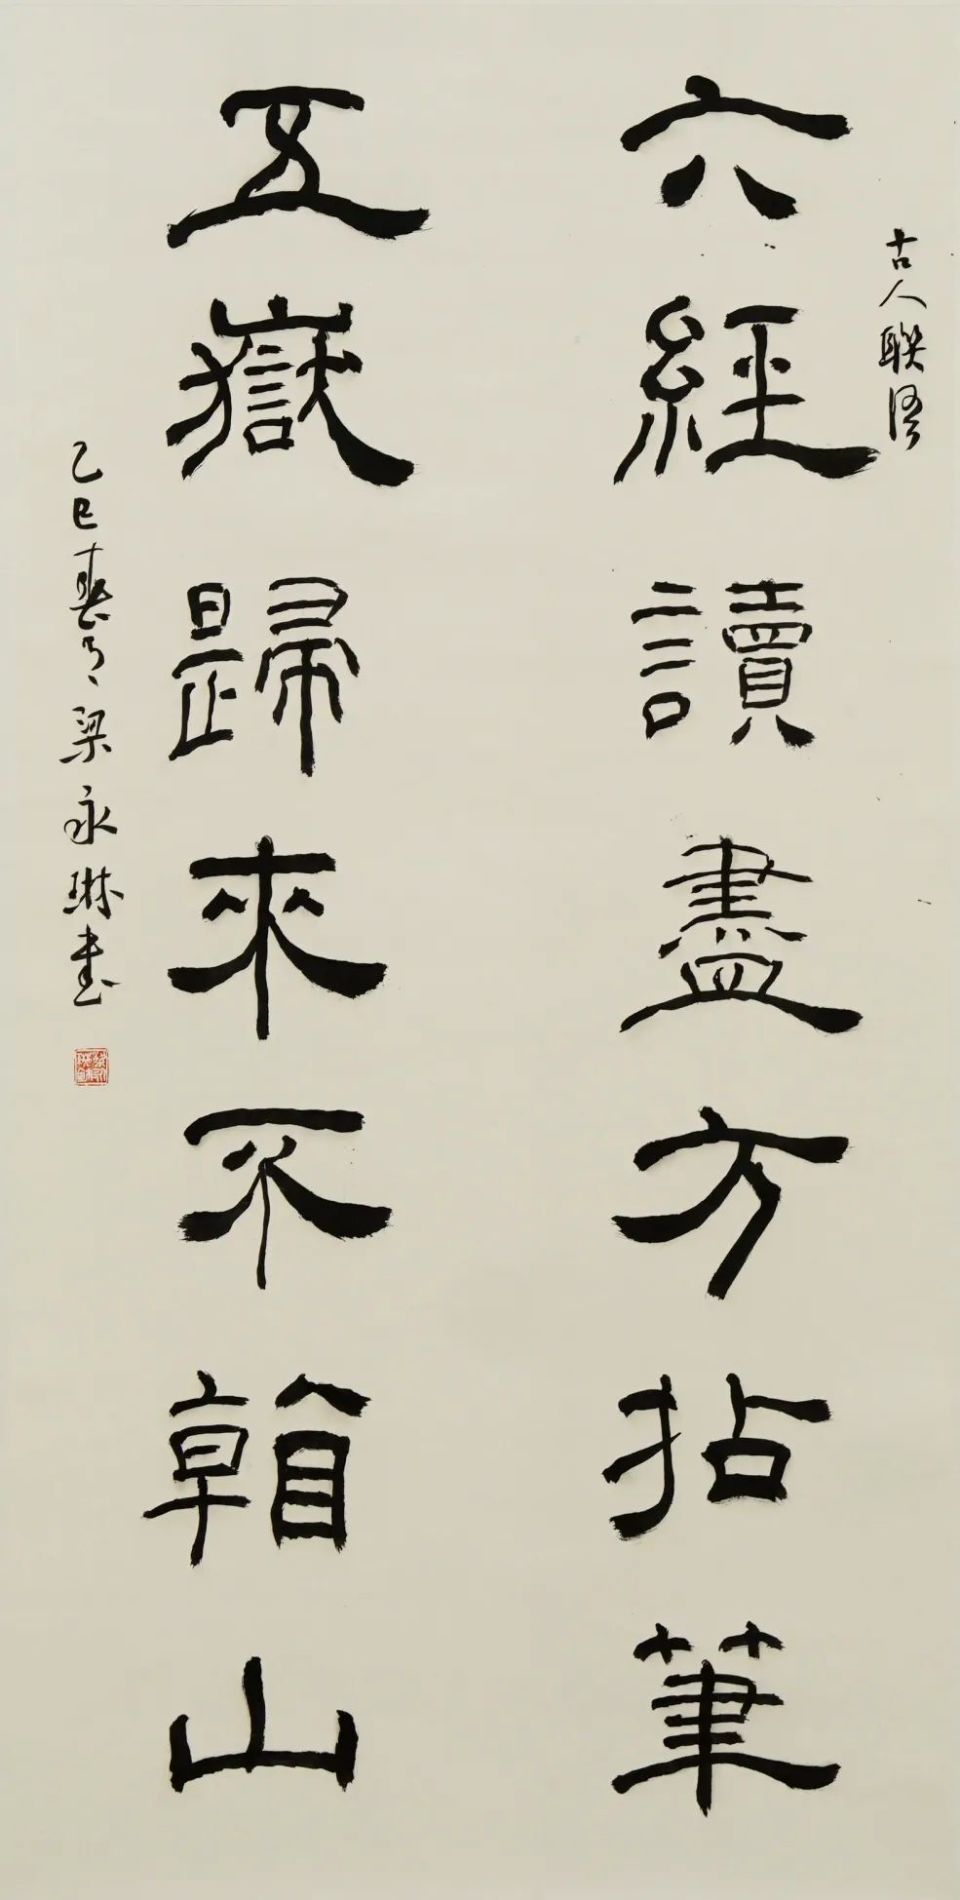 古人聯語
六經讀盡方拈筆
五嶽歸來不看山
乙巳春月梁永琳書